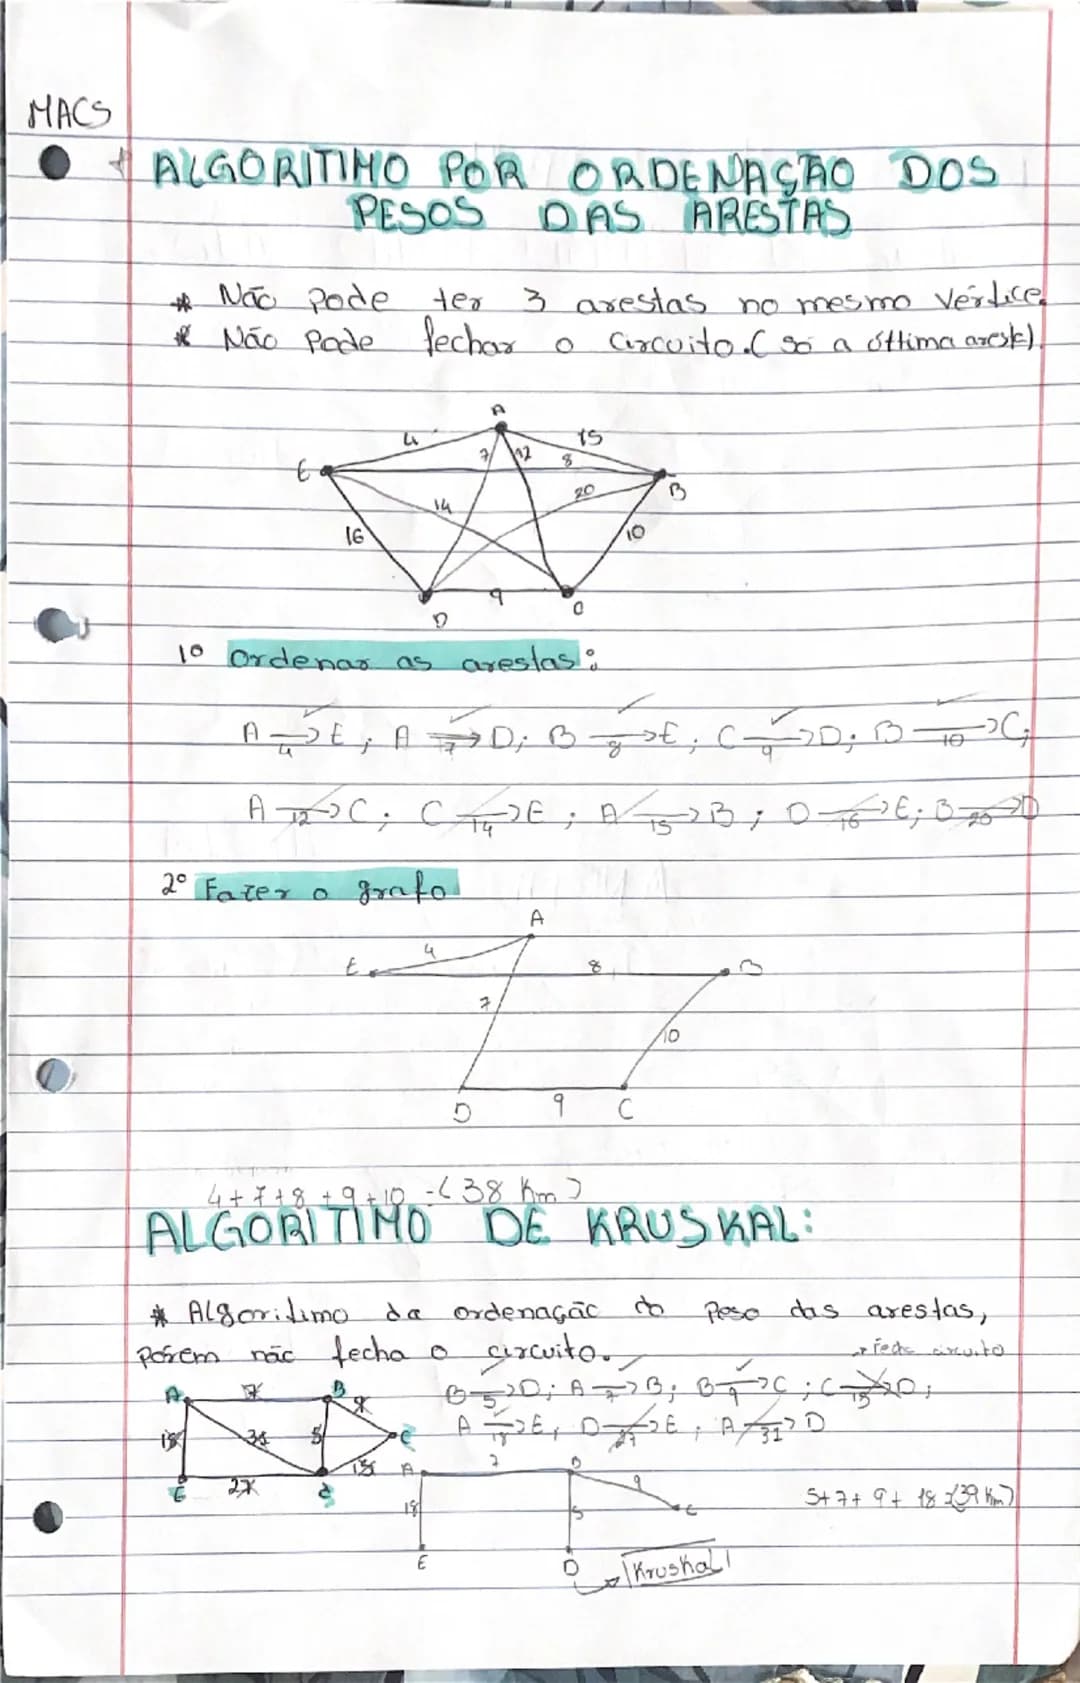 MACS
ALGORITIMO POR ORDENAÇÃO DOS
PESOS DAS ARESTAS
* Não pode ter 3 arestas no mesmo vértice.
* Não Pode fechar o circuito. (só a últtima aresta).
A
4 15
E 7 12 8
20 B
14
16 10
9
D C
1º Ordenar as arestas:
A →4 E; A →7 D; B →8 E; C →9 D; B →10 C;
A →12 C; C →14 E; A →15 B; D →16 E; B →20 D
2º Fazer o grafo
A
4
E 8 B
7
10
D 9 C
4+7+8+9+10 = (38 Km)
ALGORITIMO DE KRUSKAL:
* Algoritimo da ordenação do Peso das arestas,
Porém não fecha o circuito.
→ fecha circuito
B →5 D; A →7 B; B →9 C; C →15 D;
A →18 E; D →27 E; A →31 D
A 7 B 9
18 31 5 C
15
E 27 d
A 7 B
9
18 5 C
5+7+9+18 = (39 Km)
E D
Kruskal